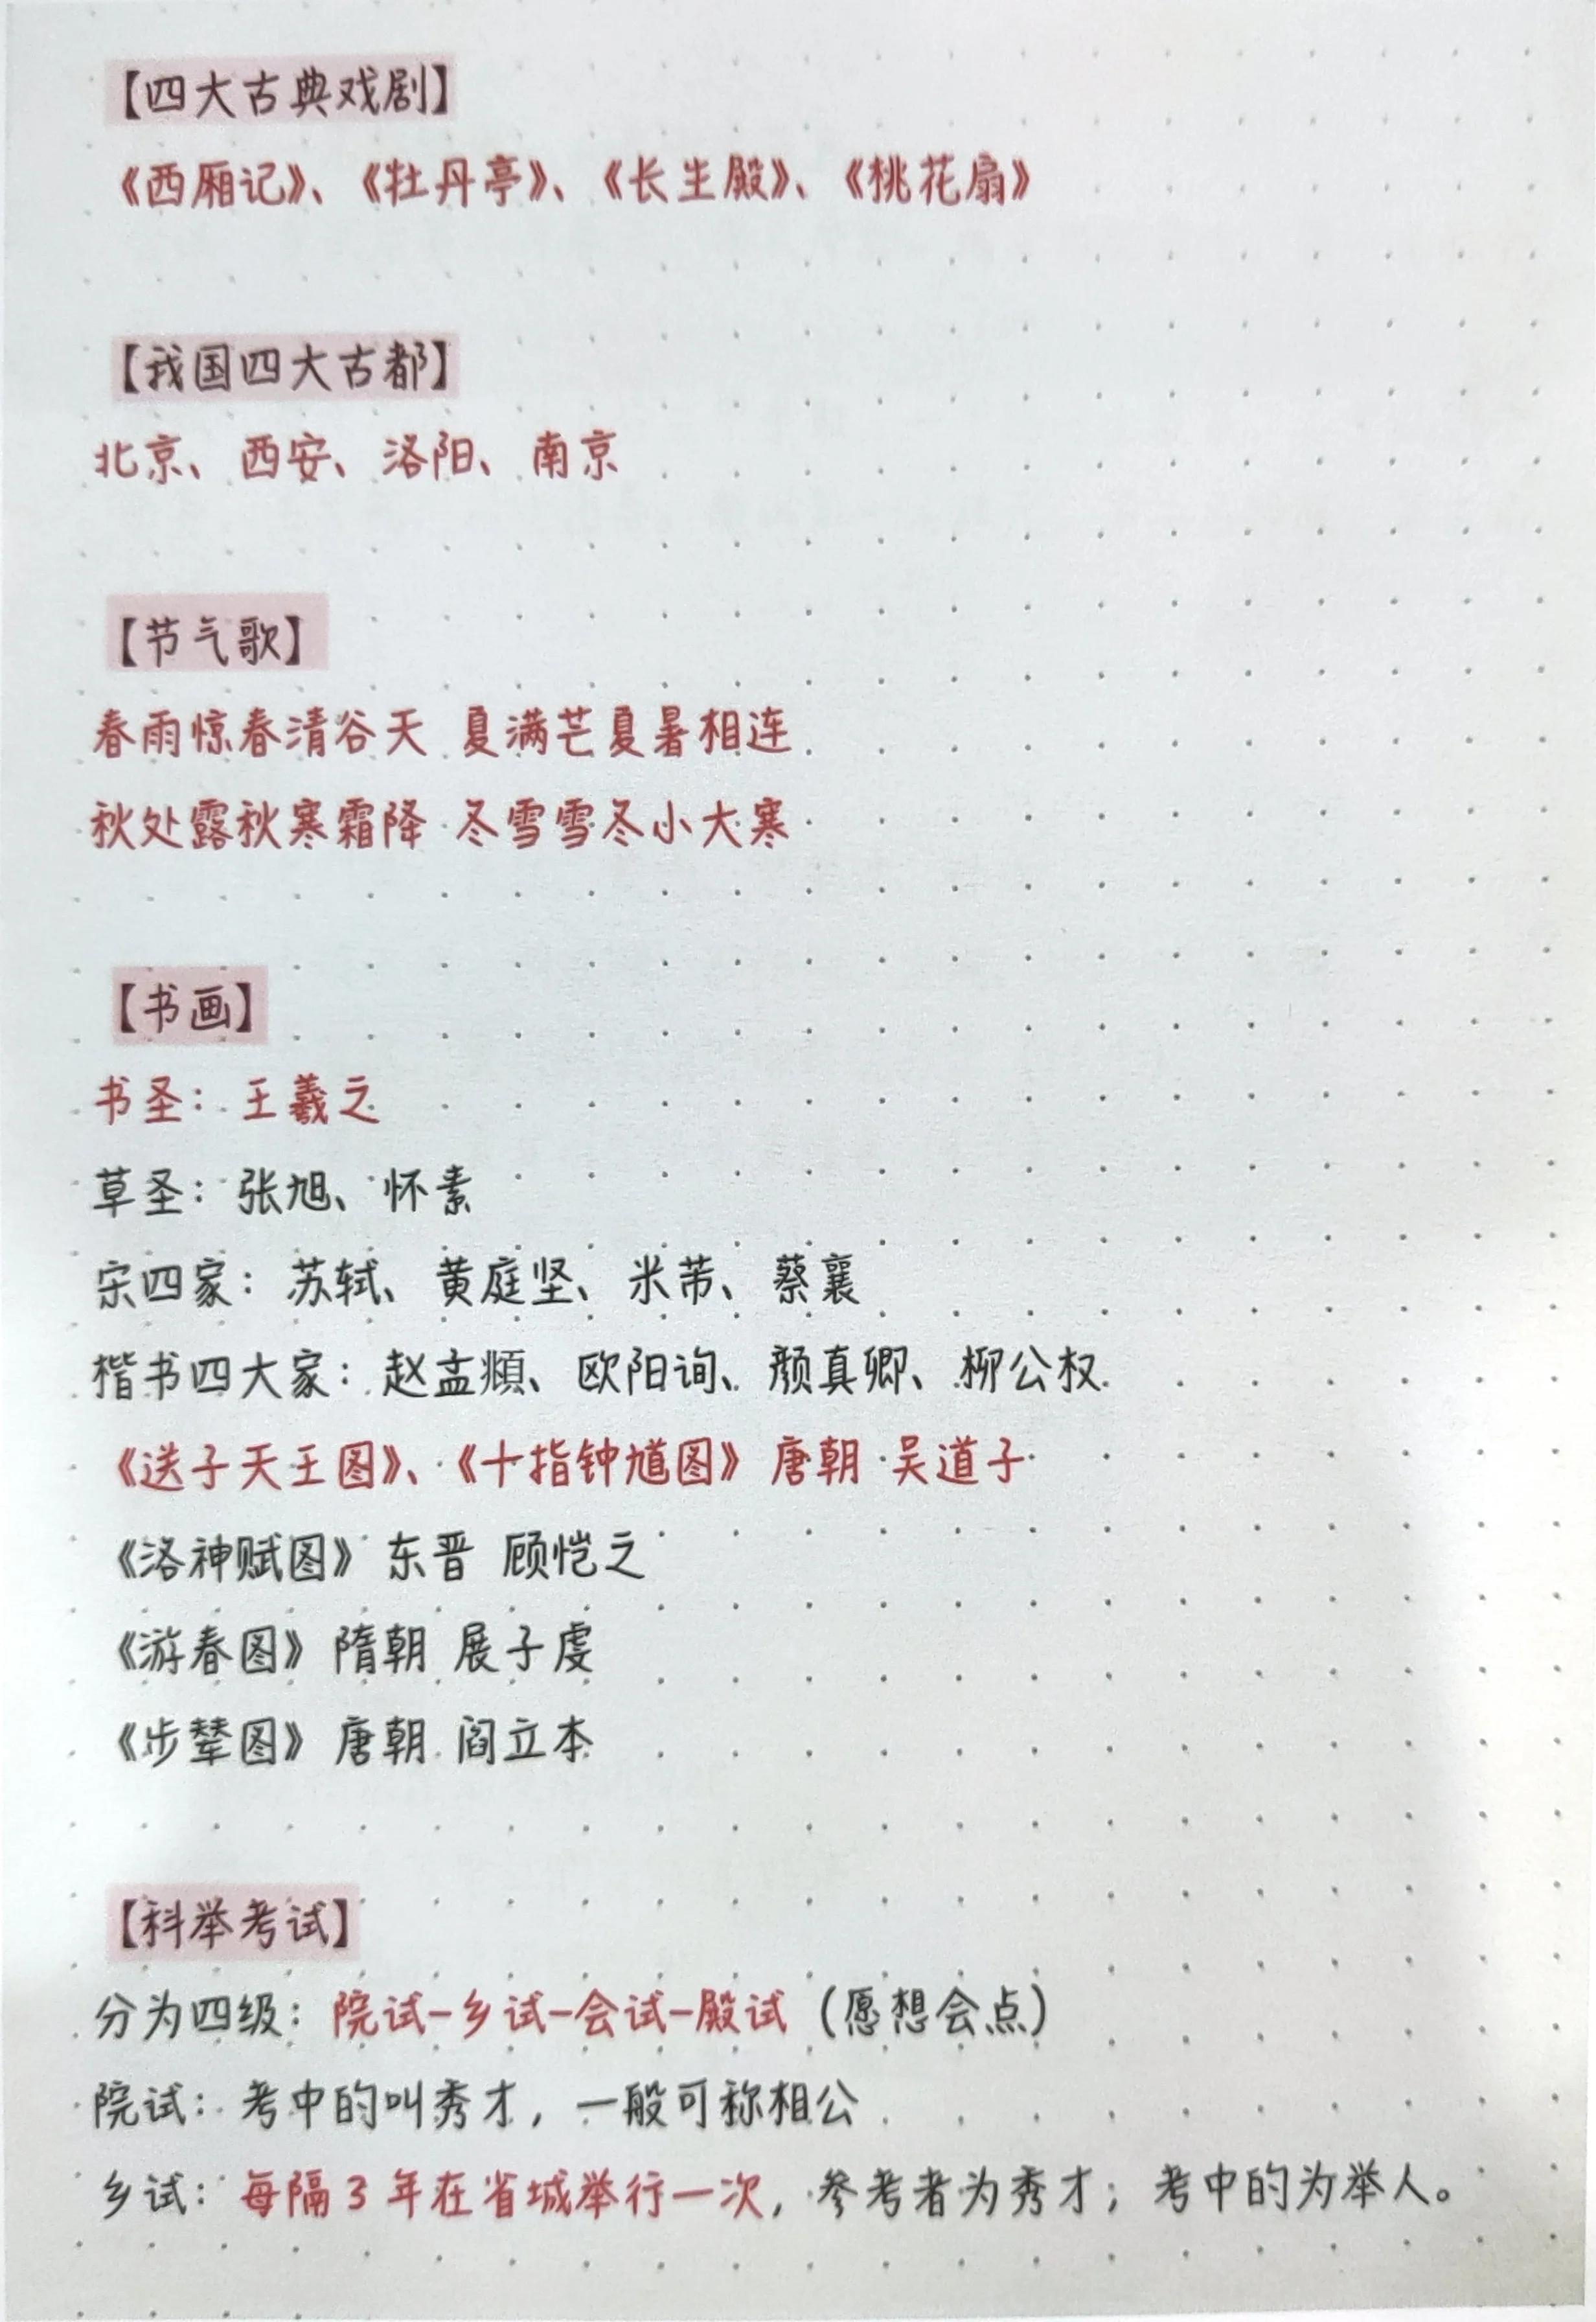 【四大古典戏剧】
《西厢记》、《牡丹亭》、《长生殿》、《桃花扇》
【我国四大古都】
北京、西安、洛阳、南京
【节气歌】
春雨惊春清谷天 夏满芒夏暑相连
秋处露秋寒霜降 冬雪雪冬小大寒
【书画】
书圣：王羲之
草圣：张旭、怀素
宋四家：苏轼、黄庭坚、米芾、蔡襄
楷书四大家：赵孟頫、欧阳询、颜真卿、柳公权
《送子天王图》、《十指钟馗图》唐朝 吴道子
《洛神赋图》东晋 顾恺之
《游春图》隋朝 展子虔
《步辇图》唐朝 阎立本
【科举考试】
分为四级：院试-乡试-会试-殿试（愿想会点）
院试：考中的叫秀才，一般可称相公
乡试：每隔3年在省城举行一次，参考者为秀才；考中的为举人。